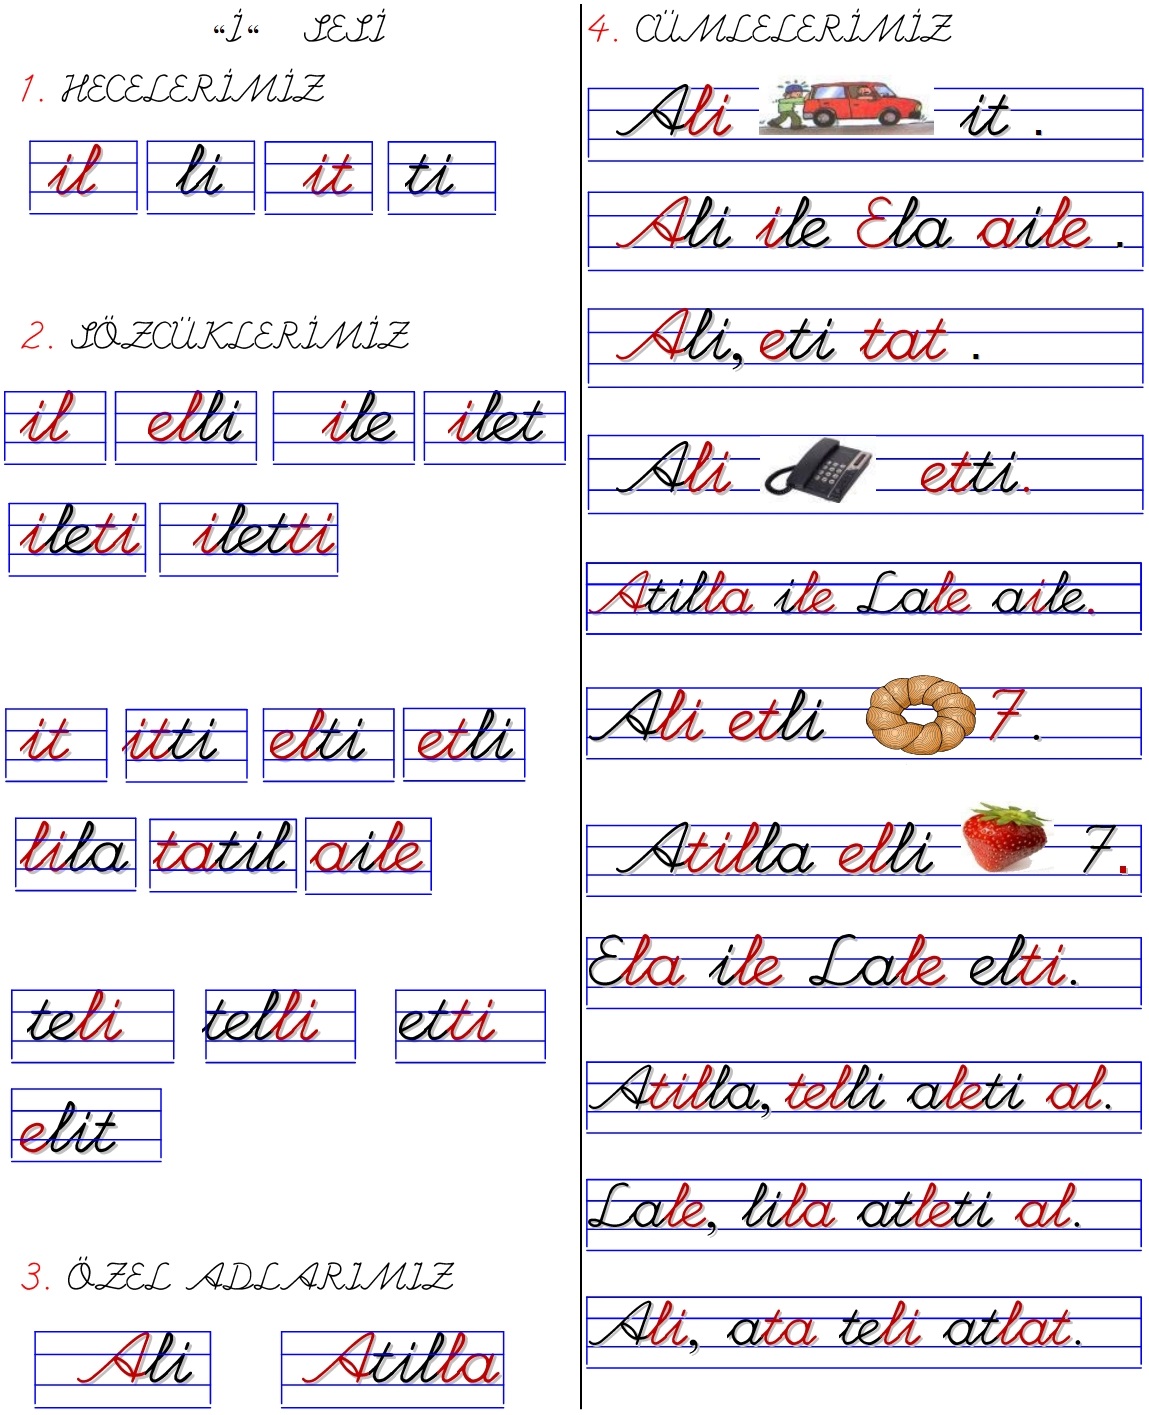 “İ“ SESİ
1. HECELERİMİZ
il li it ti
2. SÖZCÜKLERİMİZ
il elli ile ilet
ileti iletti
it itti elti etli
lila tatil aile
teli telli etti
elit
3. ÖZEL ADLARIMIZ
Ali Atilla
4. CÜMLELERİMİZ
Ali it .
Ali ile Ela aile .
Ali, eti tat .
Ali etti.
Atilla ile Lale aile.
Ali etli 7 .
Atilla elli 7.
Ela ile Lale elti.
Atilla, telli aleti al.
Lale, lila atleti al.
Ali, ata teli atlat.